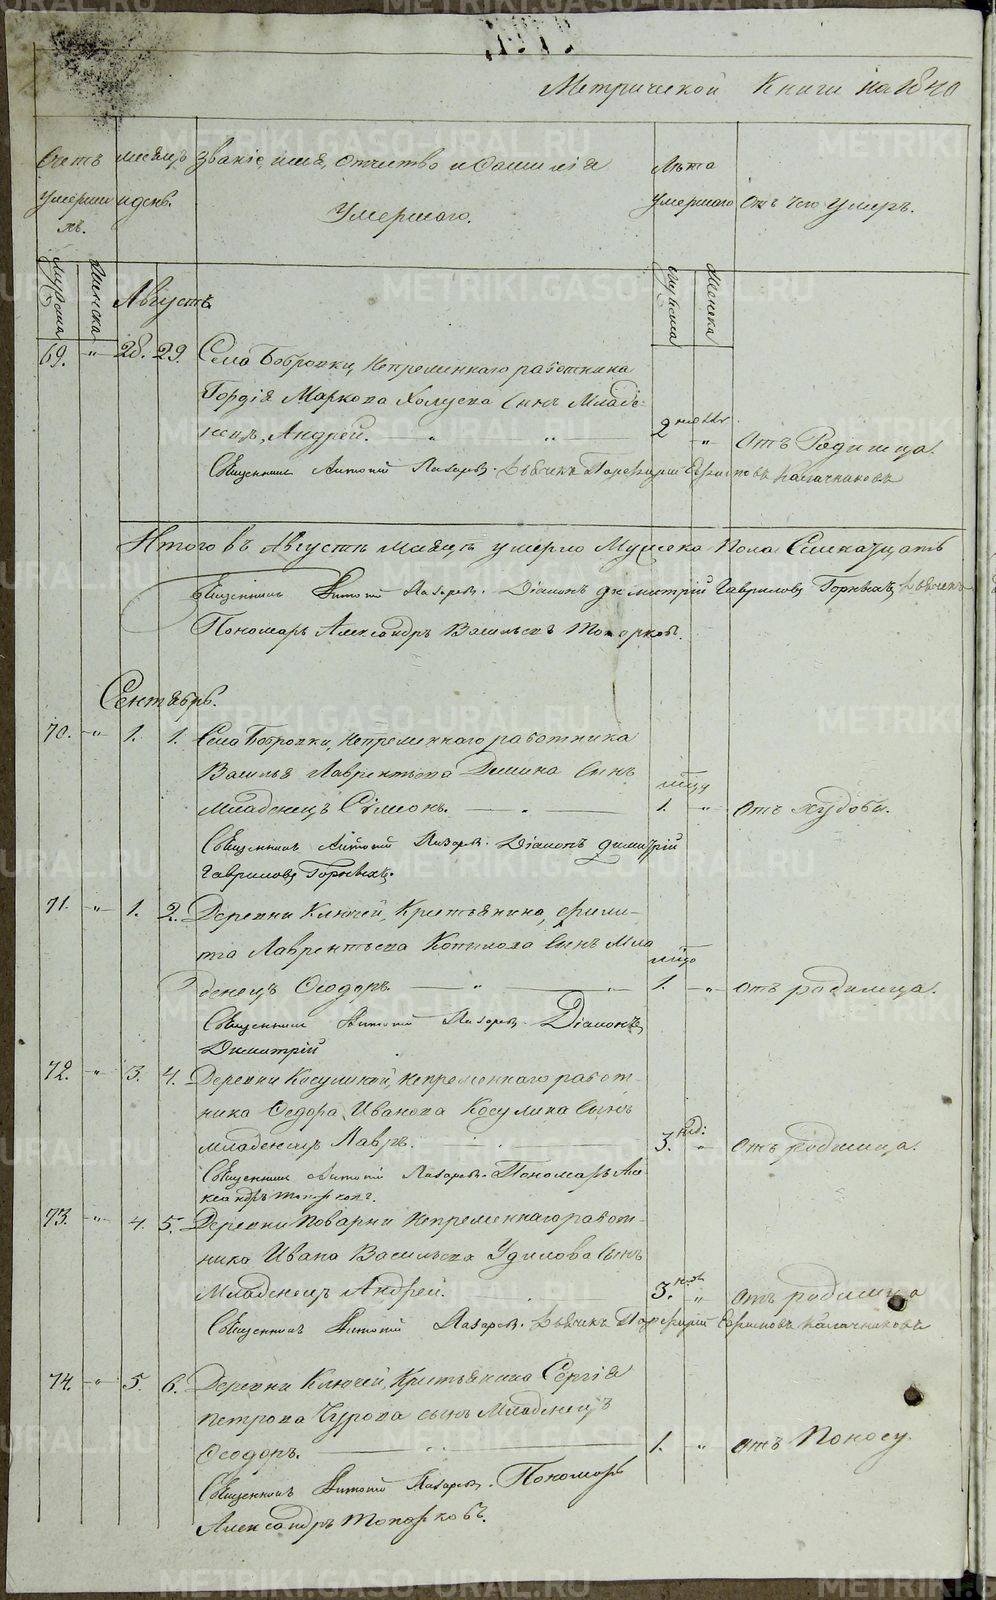 Метрической Книги на 1840
Счетъ месяцъ званіе, имя отчество и Фамилія Лѣта
умерши и день. Умершаго. умершаго Отъ чего умеръ.
хъ.
мужска женска мужска женска
Августъ
69. " 28. 29. Села Бобровки, Непременнаго работника
Гордія Маркова сынъ Младе-
нецъ, Андрей. 2 недѣл. " Отъ Родимца.
Священникъ Антоній Лазаревъ. Дьячекъ Порфирій Калачниковъ
Итого въ Августѣ месяцѣ умерло Мужеска Пола
Священникъ Антоній Лазаревъ. Діаконъ Димитрій Гавриловъ Горныхъ, Дьячекъ
Пономарь Александръ Васильевъ Топорковъ.
Сентябрь.
70. " 1. 1. Села Бобровки, Непременнаго работника
Василья Лаврентьева Демина сынъ
младенецъ Сімеонъ. 1. мцу " отъ худобы.
Священникъ Антоній Лазаревъ. Діаконъ Димитрій
Гавриловъ Горныхъ.
71. " 1. 2. Деревни Ключей, Крестьянина, Фили-
та Лаврентьева Копылова сынъ Мла
денецъ Ѳеодоръ. 1. мцо " отъ родимца.
Священникъ Антоній Лазаревъ. Діаконъ
Димитрій
72. " 3. 4. Деревни Косулиной, непременнаго работ-
ника Ѳедора Иванова Косулина сынъ
младенецъ Лавръ. 3. нед: " отъ родимца.
Священникъ Антоній Лазаревъ. Пономарь Але
ксандръ Топорковъ.
73. " 4. 5. Деревни Поварни непременнаго работ-
ника Ивана Васильева Удилова сынъ
Младенецъ Андрей. 3. " отъ родимца
Священникъ Антоній Лазаревъ. Дьячекъ Порфирій Калачниковъ
74. " 5. 6. Деревни Ключей, Крестьянина Сергія
Петрова Чурова сынъ Младенецъ
Ѳеодоръ. 1. " отъ Поносу.
Священникъ Антоній Лазаревъ. Пономарь
Александръ Топорковъ.
METRIKI.GASO-URAL.RU